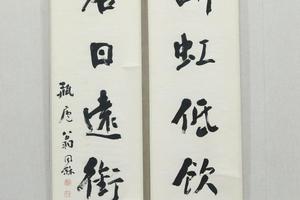 虹低飲
日遠銜
瓶廬翁同龢